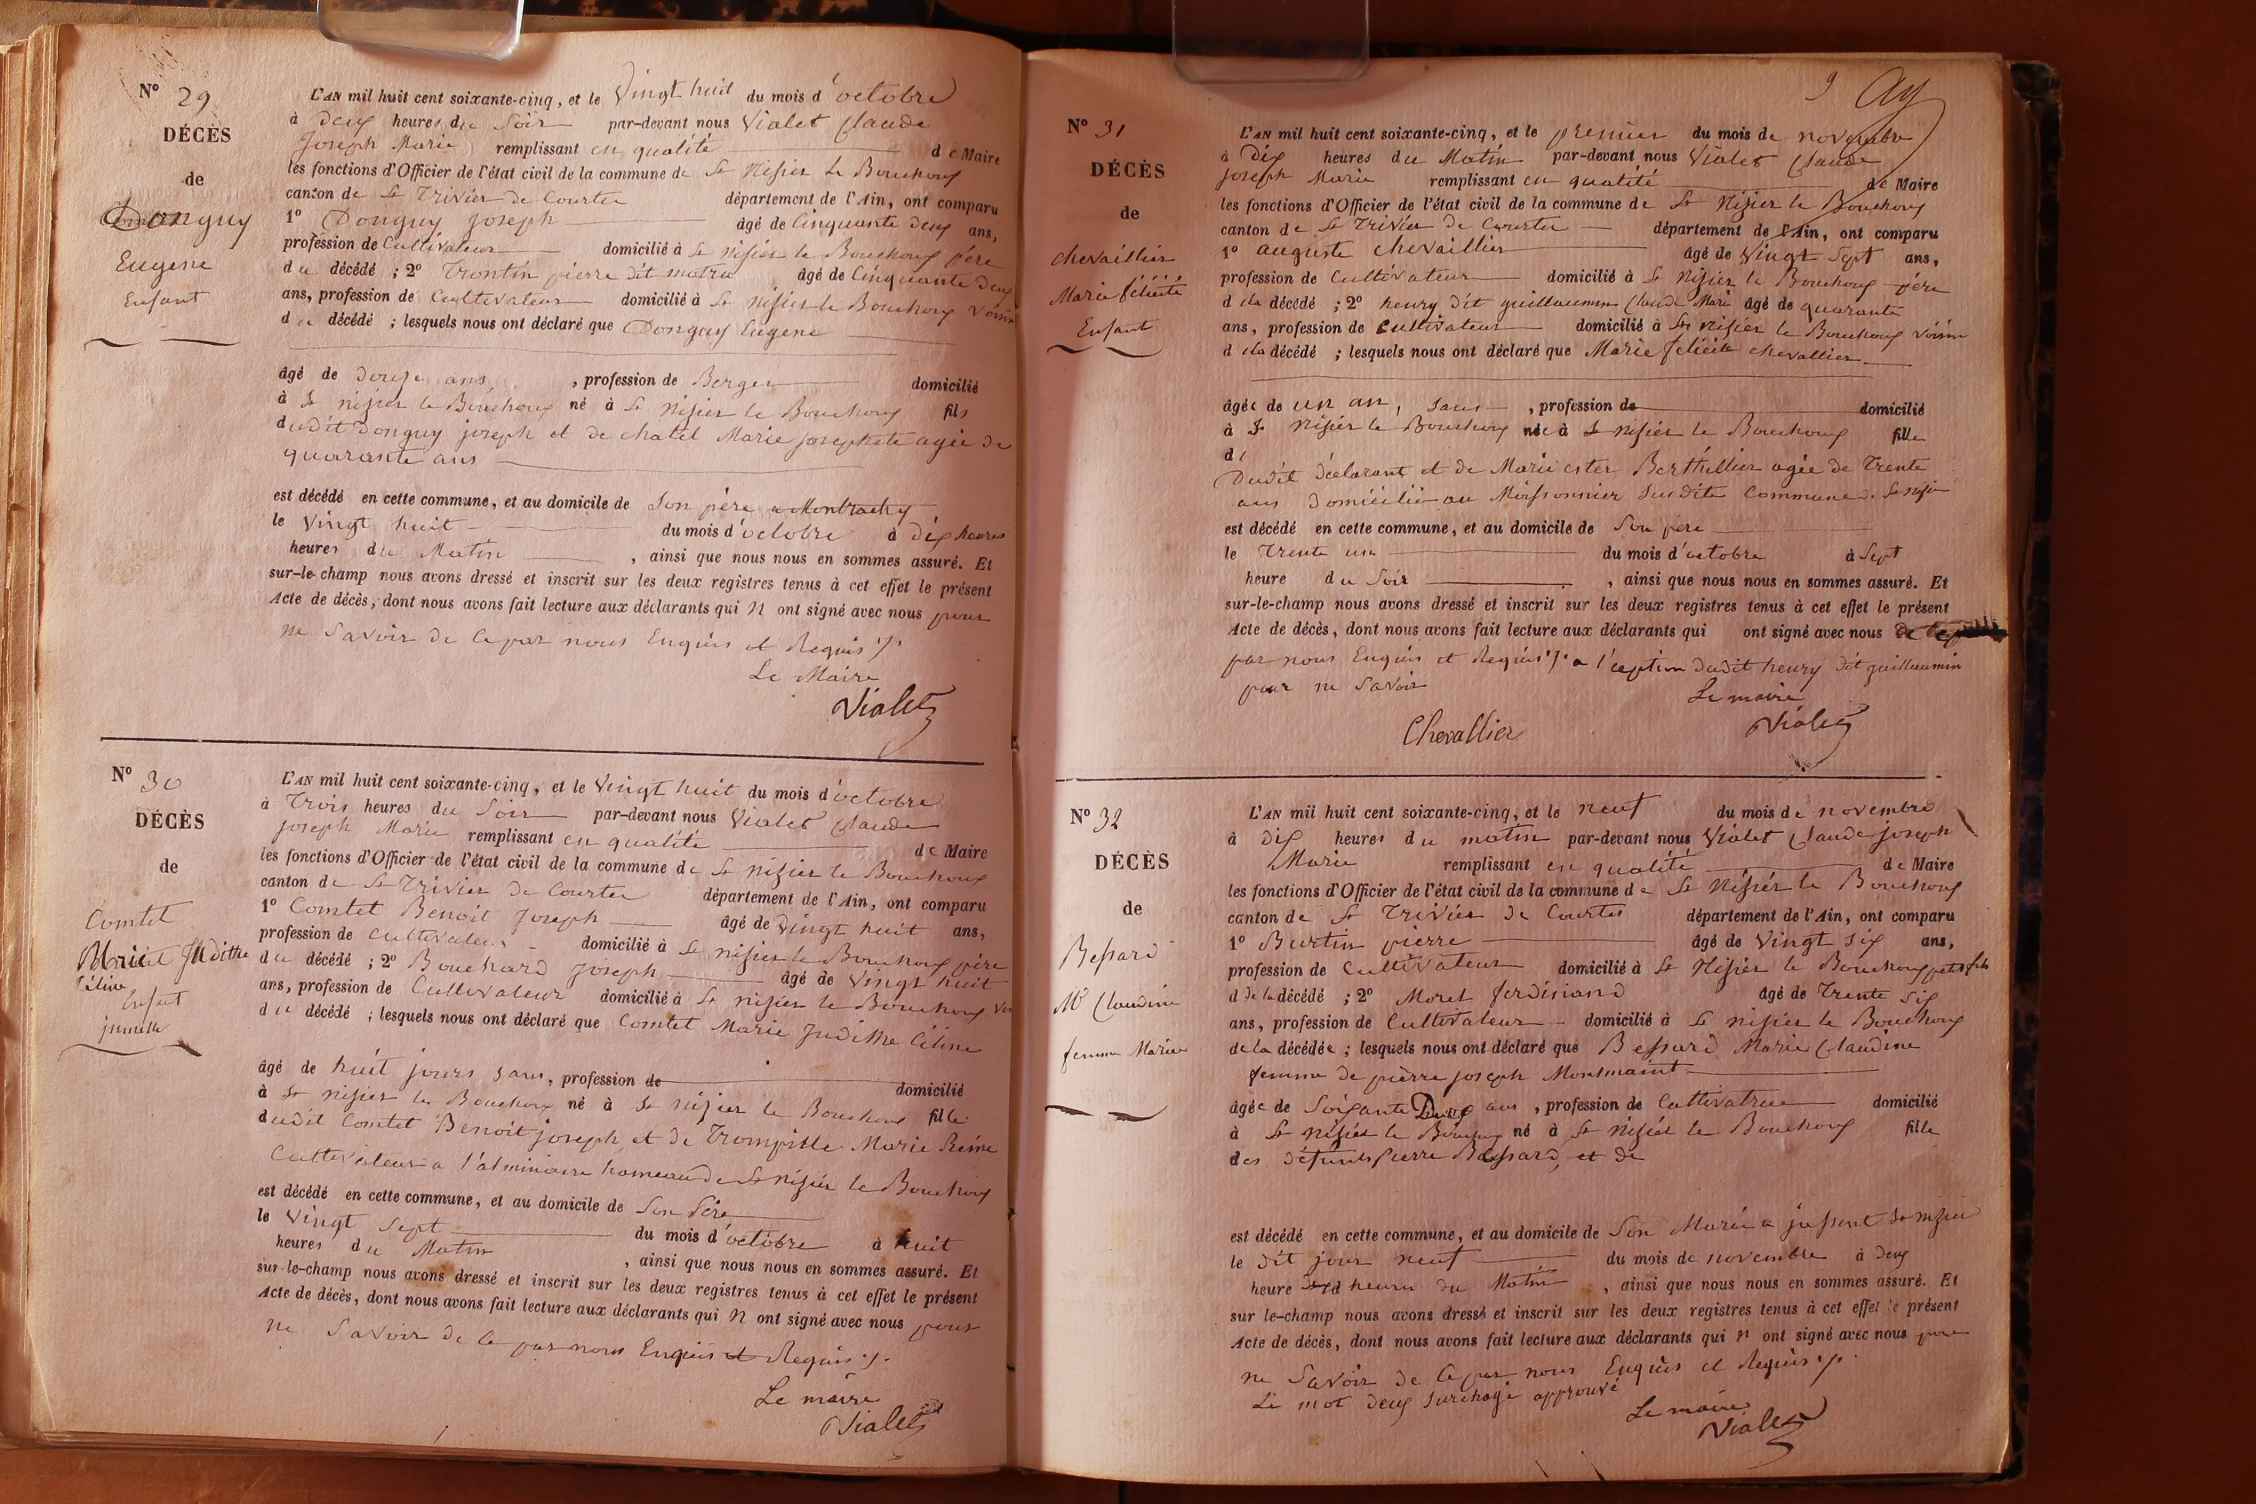 N° 29
DÉCÈS
de
Donguy
Eugene
Enfant
L'AN mil huit cent soixante-cinq, et le Vingt huit du mois d'octobre
à Deux heures du Soir par-devant nous Vialet Claude
Joseph Marie remplissant en qualité de Maire
les fonctions d'Officier de l'état civil de la commune de St Nisier le Bouchoux
canton de St Trivier de Courtes département de l'Ain, ont comparu
1° Donguy Joseph âgé de Cinquante deux ans,
profession de Cultivateur domicilié à St nisier le Bouchoux père
du décédé ; 2° Trontin pierre dit matru âgé de Cinquante deux
ans, profession de Cultivateur domicilié à St nisier le Bouchoux Voisin
du décédé ; lesquels nous ont déclaré que Donguy Eugene
âgé de douze ans, profession de Berger domicilié
à St nisier le Bouchoux né à St nisier le Bouchoux fils
dudit Donguy joseph et de chatel Marie josephete agée de
quarante ans
est décédé en cette commune, et au domicile de Son père
le Vingt huit du mois d'octobre à Dix heures
heures du Matin , ainsi que nous nous en sommes assuré. Et
sur-le-champ nous avons dressé et inscrit sur les deux registres tenus à cet effet le présent
Acte de décès, dont nous avons fait lecture aux déclarants qui N ont signé avec nous pour
ne Savoir de Ce par nous Enquis et Requis
Le Maire
Vialet
N° 30
DÉCÈS
de
Comtet
Marie Judithe
Céline
Enfant
jumelle
L'AN mil huit cent soixante-cinq, et le Vingt huit du mois d'octobre
à Trois heures du Soir par-devant nous Vialet Claude
Joseph Marie remplissant en qualité de Maire
les fonctions d'Officier de l'état civil de la commune de St nisier le Bouchoux
canton de St Trivier de Courtes département de l'Ain, ont comparu
1° Comtet Benoit Joseph âgé de Vingt huit ans,
profession de Cultivateur domicilié à St nisier le Bouchoux père
du décédé ; 2° Bouchard Joseph âgé de Vingt huit
ans, profession de Cultivateur domicilié à St nisier le Bouchoux
du décédé ; lesquels nous ont déclaré que Comtet Marie Judithe Céline
âgé de huit jours sans, profession de domicilié
à St nisier le Bouchoux né à St nisier le Bouchoux fille
dudit Comtet Benoit joseph et de Trompille Marie Reine
Cultivateur a hameau de St nisier le Bouchoux
est décédé en cette commune, et au domicile de Son Père
le Vingt Sept du mois d'octobre à huit
heures du Matin , ainsi que nous nous en sommes assuré. Et
sur-le-champ nous avons dressé et inscrit sur les deux registres tenus à cet effet le présent
Acte de décès, dont nous avons fait lecture aux déclarants qui N ont signé avec nous pour
ne Savoir de Ce par nous Enquis et Requis
Le maire
Vialet
9
N° 31
DÉCÈS
de
chevaillier
Marie félicité
Enfant
L'AN mil huit cent soixante-cinq, et le premier du mois de novembre
à Dix heures du Matin par-devant nous Vialet Claude
joseph Marie remplissant en qualité de Maire
les fonctions d'Officier de l'état civil de la commune de St Nisier le Bouchoux
canton de St Trivier de Courtes département de l'Ain, ont comparu
1° auguste chevaillier âgé de Vingt Sept ans,
profession de Cultivateur domicilié à St Nisier le Bouchoux père
d ela décédé ; 2° henry dit guillaumin Claude Marie âgé de quarante
ans, profession de Cultivateur domicilié à St nisier le Bouchoux Voisin
d ela décédé ; lesquels nous ont déclaré que Marie felicité chevallier
âgée de un an, sans , profession de domicilié
à St Nisier le Bouchoux née à St nisier le Bouchoux fille
d
Dudit Déclarant et de Marie ester Berthillier agée de Trente
ans Domicilié au Moissonnier Susdite Commune de St nisier
est décédé en cette commune, et au domicile de Son père
le Trente un du mois d'octobre à Sept
heure du Soir , ainsi que nous nous en sommes assuré. Et
sur-le-champ nous avons dressé et inscrit sur les deux registres tenus à cet effet le présent
Acte de décès, dont nous avons fait lecture aux déclarants qui ont signé avec nous
par nous Enquis et Requis a l'eeption dudit henry dit guillaumin
pour ne Savoir
Le maire
Chevallier
Vialet
N° 32
DÉCÈS
de
Bessard
Me Claudine
femme Mariée
L'AN mil huit cent soixante-cinq, et le neuf du mois de novembre
à dix heures du matin par-devant nous Vialet Claude joseph
Marie remplissant en qualité de Maire
les fonctions d'Officier de l'état civil de la commune de St Nisier le Bouchoux
canton de St Trivier de Courtes département de l'Ain, ont comparu
1° Burtin pierre âgé de Vingt Six ans,
profession de Cultivateur domicilié à St Nisier le Bouchoux petit fils
d de la décédé ; 2° Morel ferdinand âgé de Trente Six
ans, profession de Cultivateur domicilié à St nisier le Bouchoux
de la décédée ; lesquels nous ont déclaré que Bessard Marie Claudine
femme de pierre joseph Montmaint
âgée de Soixante Deux ans , profession de Cultivatrice domicilié
à St nisier le Bouchoux né à St nisier le Bouchoux fille
des défunts Pierre Bessard, et de
est décédé en cette commune, et au domicile de Son Marie a jassent St nizier
le dit jour neuf du mois de novembre à deux
heure heures du Matin , ainsi que nous nous en sommes assuré. Et
sur le-champ nous avons dressé et inscrit sur les deux registres tenus à cet effet le présent
Acte de décès, dont nous avons fait lecture aux déclarants qui n ont signé avec nous pour
ne Savoir de Ce par nous Enquis et Requis
Le mot deux Surchagé approuvé
Le maire
Vialet